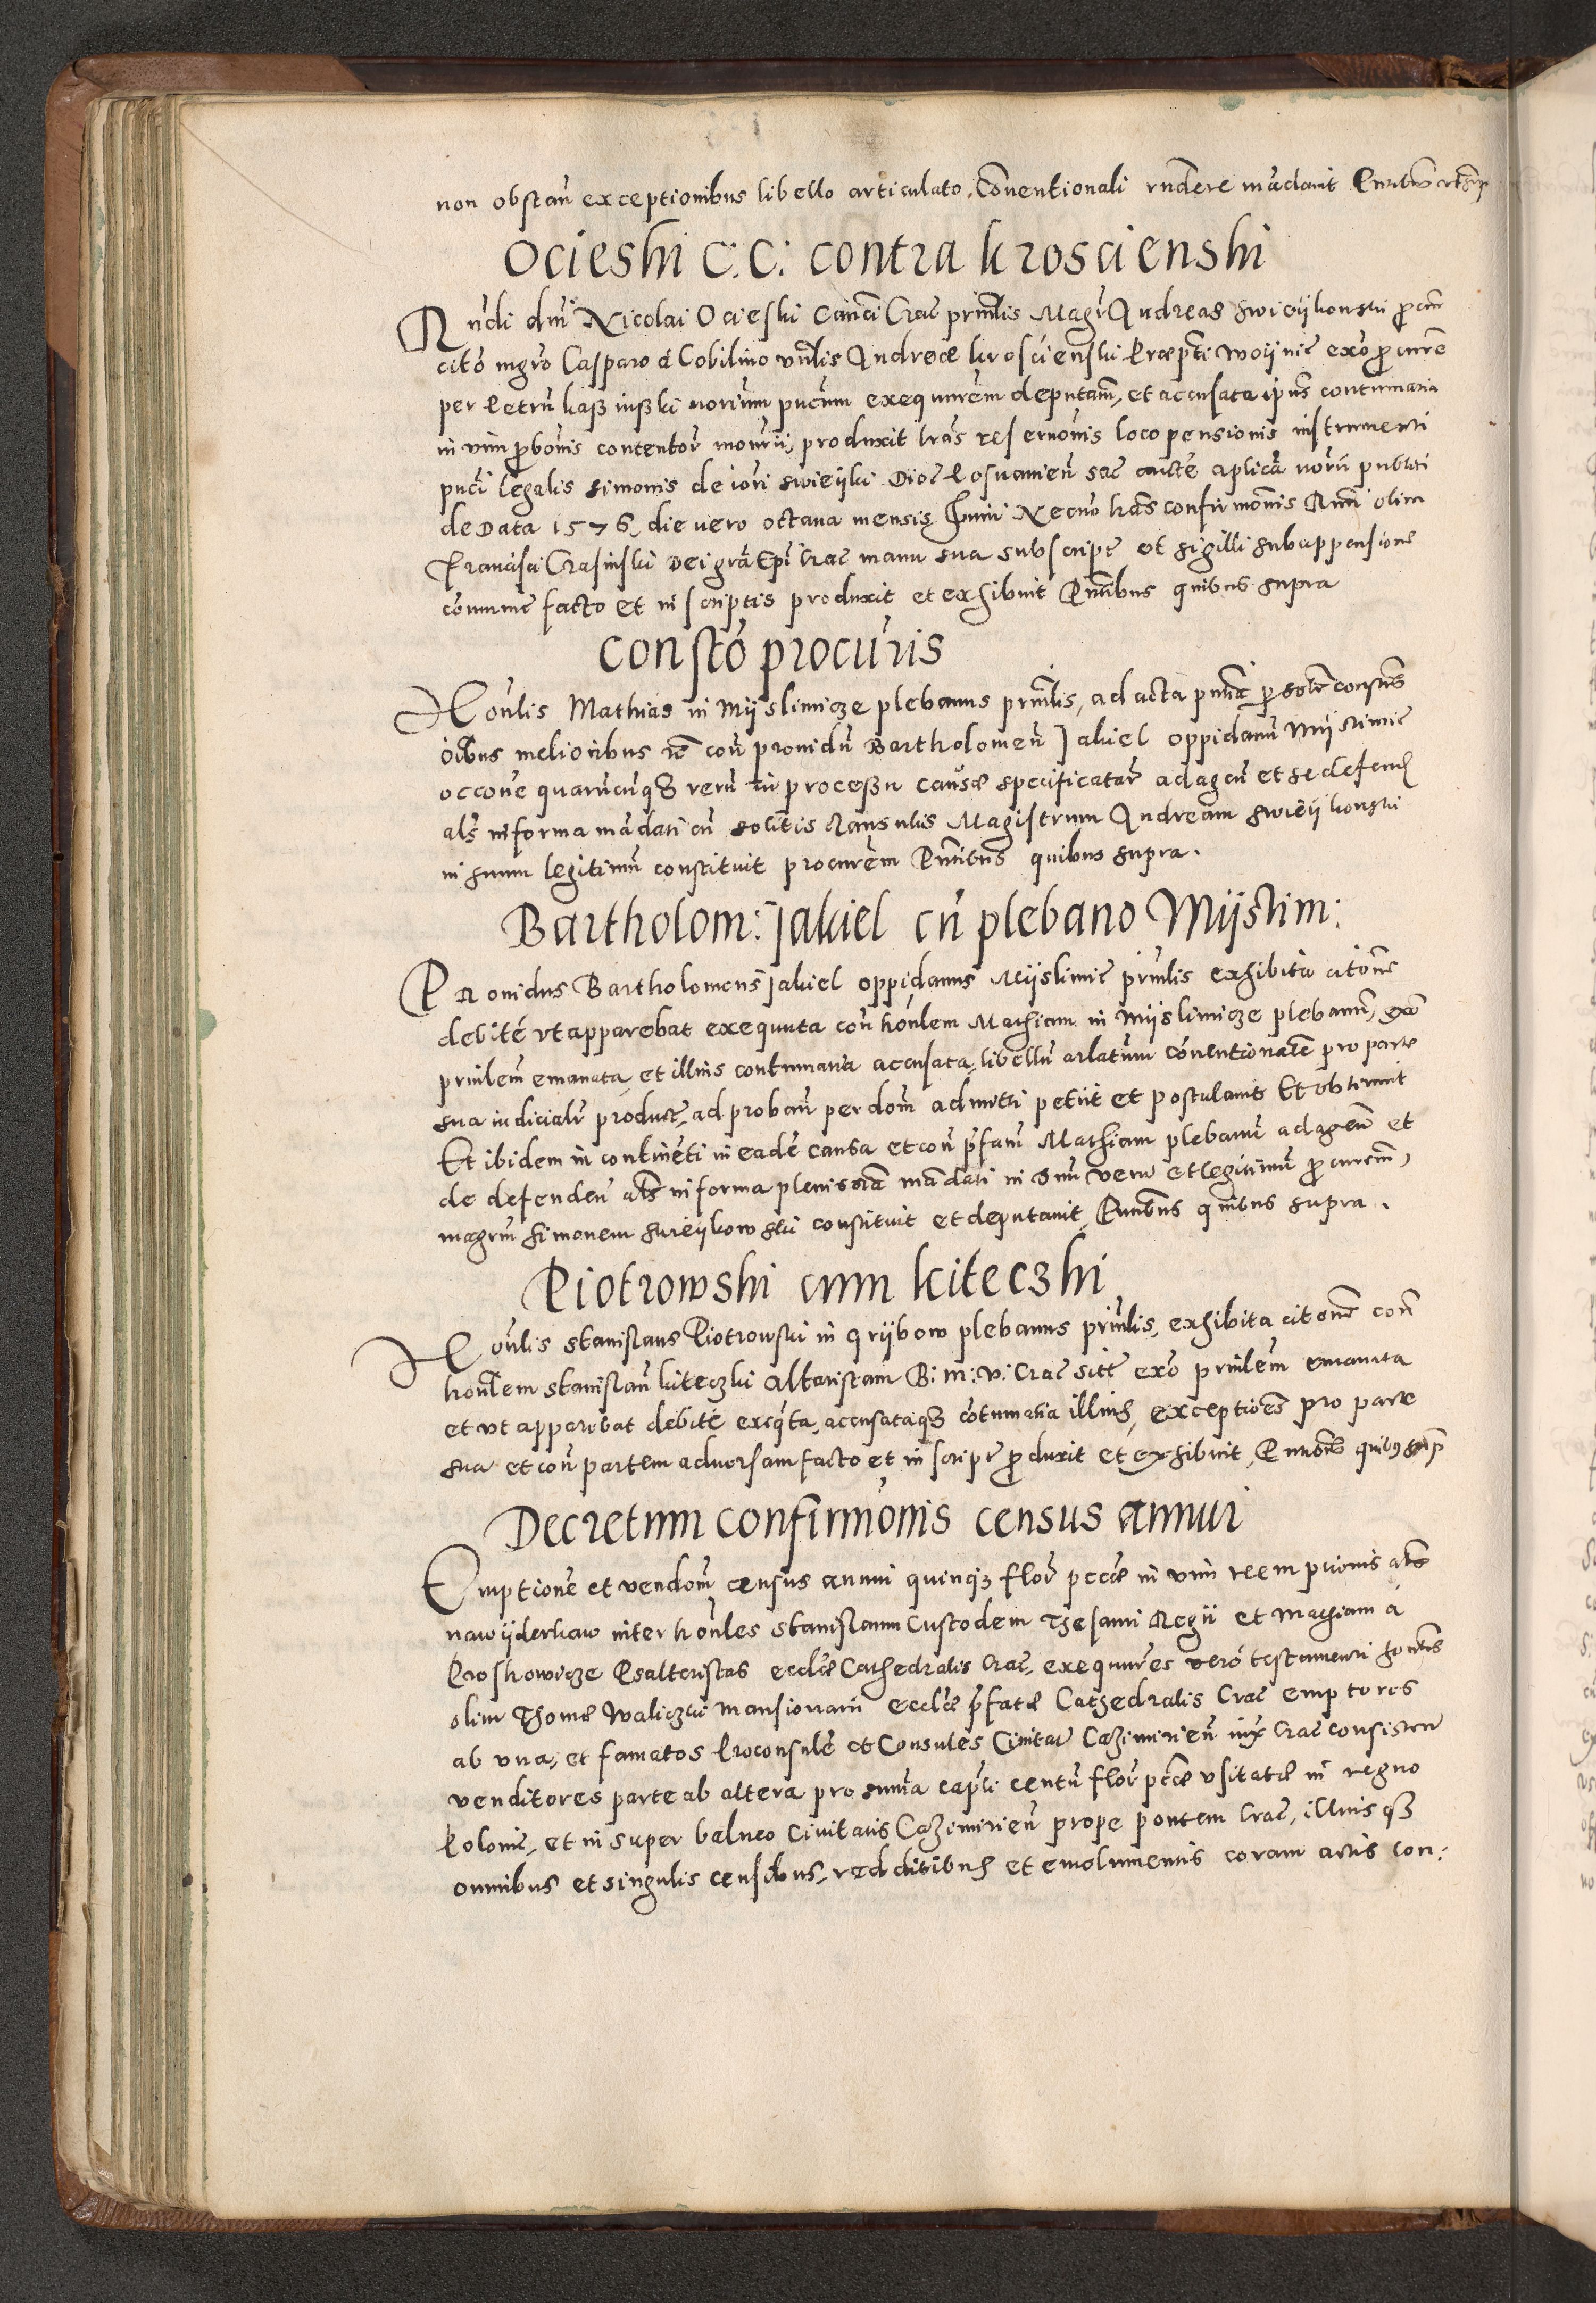 non obstañ exceptionibus libello articulato Conventionali rñdere mãdavit
Ocieski C: C: contra kroscienski
Rñdi dñi Nicolai Ocieski Canci Crac prinlis Magr Andreas Swieijkowski procur
citõ mgro Casparo á Cobilino vnlis Andreæ kroscienski Præpti Woijnic exõ procurẽ
per Petrũ notrium pucum exequurem deputam, et accusata ipius contumatia
in vim probonis contentor produxit lras reservonis loco pensionis instrumenti
puci legalis Simonis de Dioc Posnanieñ sac aucte aplica norij publici
de Data 1576, die vero octava mensis Junij Necno lras confirmonis Rndi olim
Francisci Crasinski Dei grã Epi Crac manu sua subscript et sigilli subappensione
cõmuñe facto et in scriptis produxit et exhibuit Pñtibus quibus supra
Constõ procuris
Honlis Mathias in Mijslimicze plebanus prinlis, ad acta
oibus melioribus coñ providũ Bartholomeũ Jakiel oppidanũ Mijslimic
occoñe quarũcũq3 rerũ in processu causæ specificatar ad agẽn et se defend
als in forma mãdati cũ solitis clausulis Magistrum Andream Swieijkowski
in suum legitimũ constituit procurem Pñtibus quibus supra.
Bartholom: Jakiel cũ plebano Mijslim:
Providus Bartholomeus Jakiel oppidanus Mijslimic prinlis exhibita citone
debitè vt apparebat exequuta coñ honlem Mathiam in Mijslimicze plebanũ, exõ
prinlem emanata, et illius contumatia accusata, libellũ arlatum cõventionalẽ pro parte
sua iudicialr product, ad proban per dom admitti petiit et postulavit Et obtinuit
Et ibidem in continẽti in eadẽ causa et coñ pfatũ Mathiam plebanũ ad agenũ et
de defendeñ als in forma plenissiã mãdati in suũ verũ et legitimũ procurem,
magrum Simonem Swieijkowski constituit et deputavit, Pñtibus quibus supra.
Piotrowski cum kiteczki
Honlis Stanislaus Piotrowski in Grijbow plebanus prinlis, exhibita citone coñ
honlem Stanislaũ kiteczki Altaristam B: M: V: Crac sitt exõ prinlem emanata
et vt apparebat debitè exeqta, accusataq3 cõtumatia illius, exceptiões pro parte
sua et coñ partem adversam facto et in script produxit et exhibuit, Pñtibus quibus supra
Decretum confirmõnis census annui
Emptione et vendom census annui quinq3 flor pccæ in vim reemptionis als
nawijderkaw inter honles Stanislaum Custodem Thesauri Regij et Mathiam a
Proskowicze Psalteristas ecclæ Cathedralis Crac, exequures verò testamenti hontis
olim Thomæ Waliczki mansionarij ecclæ pfatæ Cathedralis Crac emptores
ab vna, et famatos Proconsulẽ et Consules Civitat Cazimirieñ iux Crac consisteñ
venditores parte ab altera pro summa capli centũ flor pccæ vsitatæ in regno
Poloniæ, et in super balneo Civitatis Cazimirieñ prope pontem Crac, illiusq3
omnibus et singulis censibus, redditibus et emolumentis coram actis con: